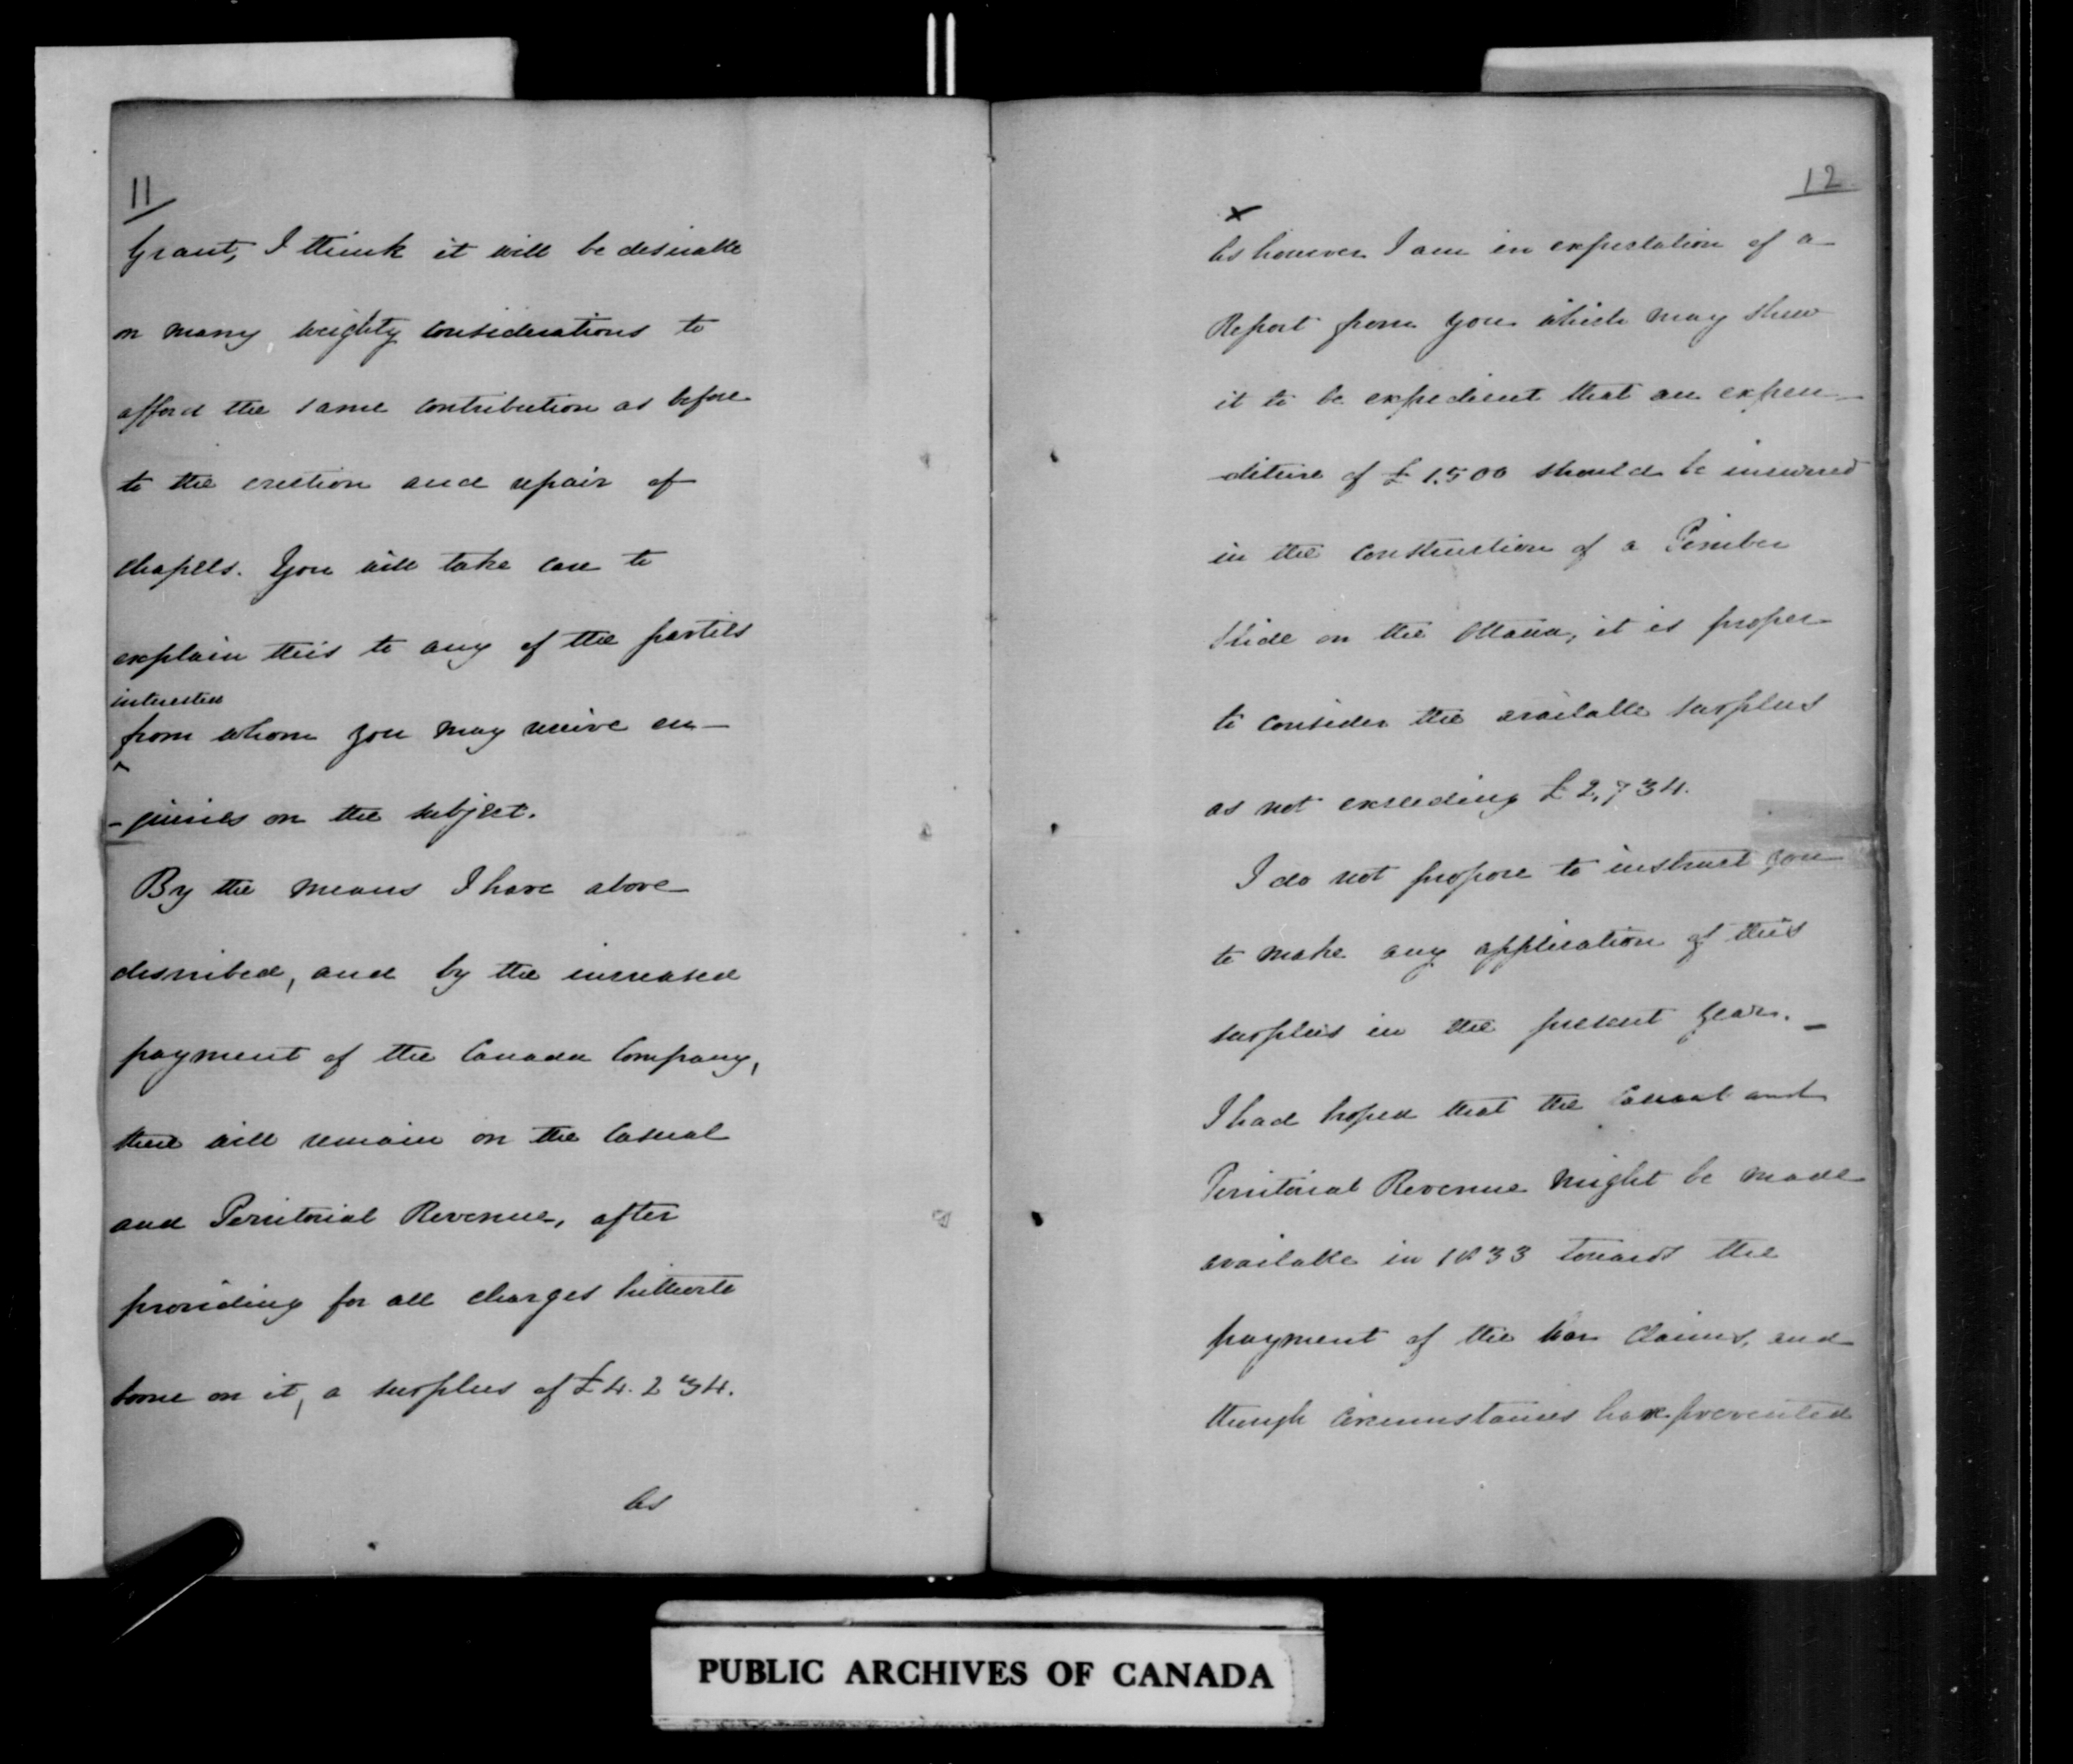 11
Grant, I think it will be desirable
on many weighty considerations to
afford the same contribution as before
to the erection and repair of
chapels. You will take care to
explain this to any of the parties
interested
from whom you may receive en-
-quiries on the subject.
By the means I have above
described, and by the increased
payment of the Canada Company,
there will remain on the Casual
and Territorial Revenue, after
providing for all charges hitherto
borne on it, a surplus of £4.234.
As
12
x
As however I am in expectation of a
Report from you which may shew
it to be expedient that an expen-
-diture of £1.500 should be incurred
in the construction of a Timber
Slide on the Ottawa, it is proper
to consider the available surplus
as not exceeding £2,734.
I do not propose to instruct you
to make any application of this
surplus in the present year. -
I had hoped that the Casual and
Territorial Revenue might be made
available in 1833 towards the
payment of the War Claims, and
though circumstances have prevented
PUBLIC ARCHIVES OF CANADA